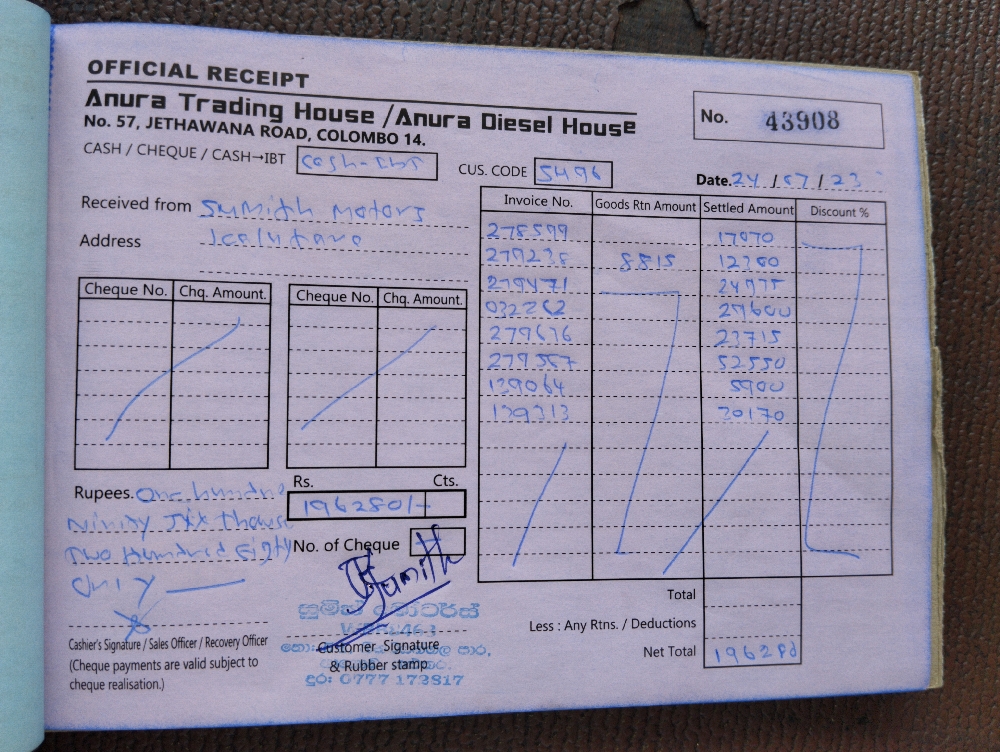 OFFICIAL RECEIPT
Anura Trading House / Anura Diesel House
No. 57, JETHAWANA ROAD, COLOMBO 14.
No. 43908
CASH / CHEQUE / CASH→IBT Cash-IBT
CUS. CODE 5496
Date. 24 / 07 / 23
Received from Sumith Motors
Address Kalutara
Cheque No. Chq. Amount. Cheque No. Chq. Amount.
Invoice No. Goods Rtn Amount Settled Amount Discount %
278599 17970
279238 8815 12380
279471 24975
032262 29600
279676 23715
279367 52550
139064 5900
139313 30170
Rupees. One hundred
Ninty Six thous
Two Hundred Eighty
Only
Rs. Cts.
196280/-
No. of Cheque
Sumith
Cashier's Signature / Sales Officer / Recovery Officer
(Cheque payments are valid subject to
cheque realisation.)
සුමිත් මොටර්ස්
Customer Signature
& Rubber stamp
දුර: 0777 173817
Total
Less : Any Rtns. / Deductions
Net Total 196280